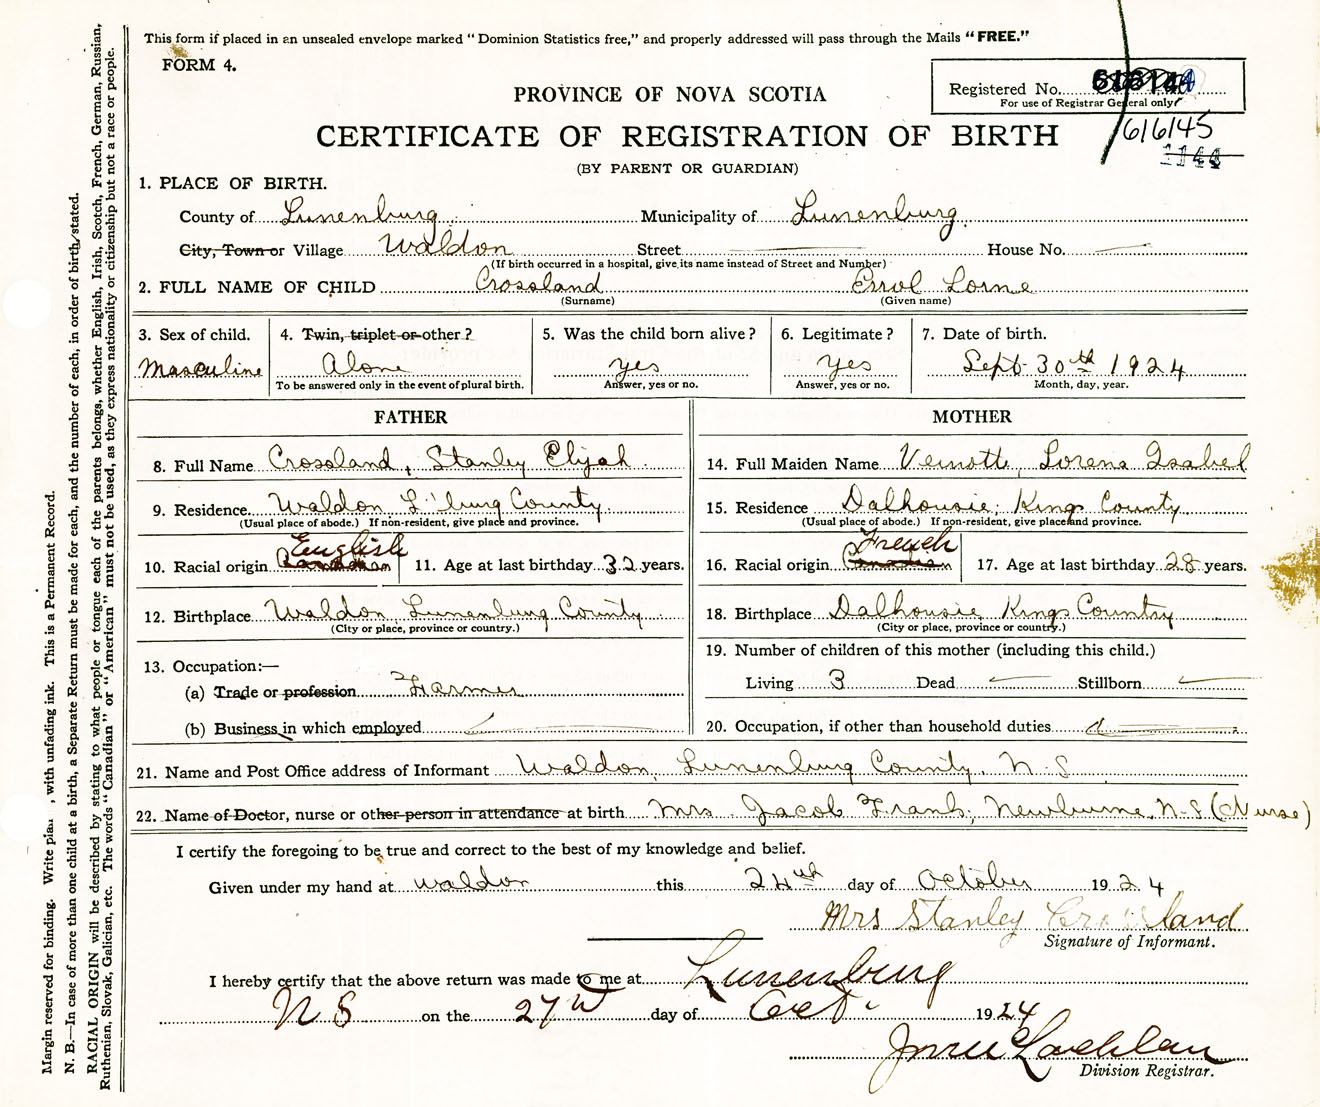 This form if placed in an unsealed envelope marked "Dominion Statistics free," and properly addressed will pass through the Mails "FREE."
FORM 4.
Registered No.
For use of Registrar General only
616145
1144
PROVINCE OF NOVA SCOTIA
CERTIFICATE OF REGISTRATION OF BIRTH
(BY PARENT OR GUARDIAN)
1. PLACE OF BIRTH.
County of Lunenburg Municipality of Lunenburg
City, Town or Village Waldon Street House No.
(If birth occurred in a hospital, give its name instead of Street and Number)
2. FULL NAME OF CHILD Crossland Errol Lorne
(Surname) (Given name)
3. Sex of child. 4. Twin, triplet or other? 5. Was the child born alive? 6. Legitimate? 7. Date of birth.
Masculine Alone yes yes Sept 30th 1924
To be answered only in the event of plural birth. Answer, yes or no. Answer, yes or no. Month, day, year.
FATHER MOTHER
8. Full Name Crossland, Stanley Elijah 14. Full Maiden Name Veinotte, Lorena Isabel
9. Residence Waldon L'burg County 15. Residence Dalhousie, Kings County
(Usual place of abode.) If non-resident, give place and province. (Usual place of abode.) If non-resident, give place and province.
English French
10. Racial origin Canadian 11. Age at last birthday 32 years. 16. Racial origin Canadian 17. Age at last birthday 28 years.
12. Birthplace Waldon Lunenburg County 18. Birthplace Dalhousie Kings Country
(City or place, province or country.) (City or place, province or country.)
13. Occupation:— 19. Number of children of this mother (including this child.)
(a) Trade or profession Farmer Living 3 Dead Stillborn
(b) Business in which employed 20. Occupation, if other than household duties
21. Name and Post Office address of Informant Waldon, Lunenburg County, N.S
22. Name of Doctor, nurse or other person in attendance at birth Mrs. Jacob Frank, Newburne, N-S (Nurse)
I certify the foregoing to be true and correct to the best of my knowledge and belief.
Given under my hand at Waldon this 24th day of October 1924
Mrs Stanley Crossland
Signature of Informant.
I hereby certify that the above return was made to me at Lunenburg
N S on the 27th day of Oct. 1924
Division Registrar.
Margin reserved for binding. Write plain, with unfading ink. This is a Permanent Record.
N. B.—In case of more than one child at a birth, a Separate Return must be made for each, and the number of each, in order of birth, stated.
RACIAL ORIGIN will be described by stating to what people or tongue each of the parents belongs, whether English, Irish, Scotch, French, German, Russian,
Ruthenian, Slovak, Galician, etc. The words "Canadian" or "American" must not be used, as they express nationality or citizenship but not a race or people.